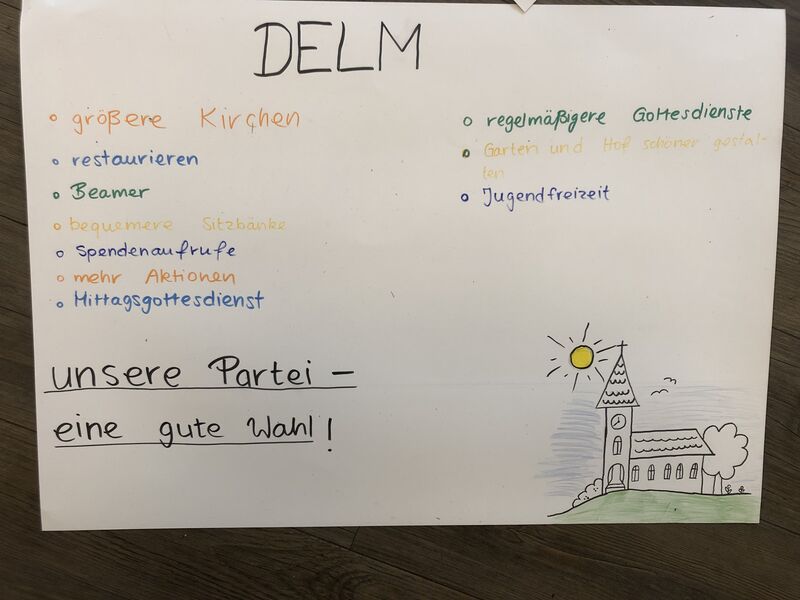 DELM
größere Kirchen
restaurieren
Beamer
bequemere Sitzbänke
Spendenaufrufe
mehr Aktionen
Mittagsgottesdienst
regelmäßigere Gottesdienste
Garten und Hof schöner gestal-
ten
Jugendfreizeit
unsere Partei -
eine gute Wahl!